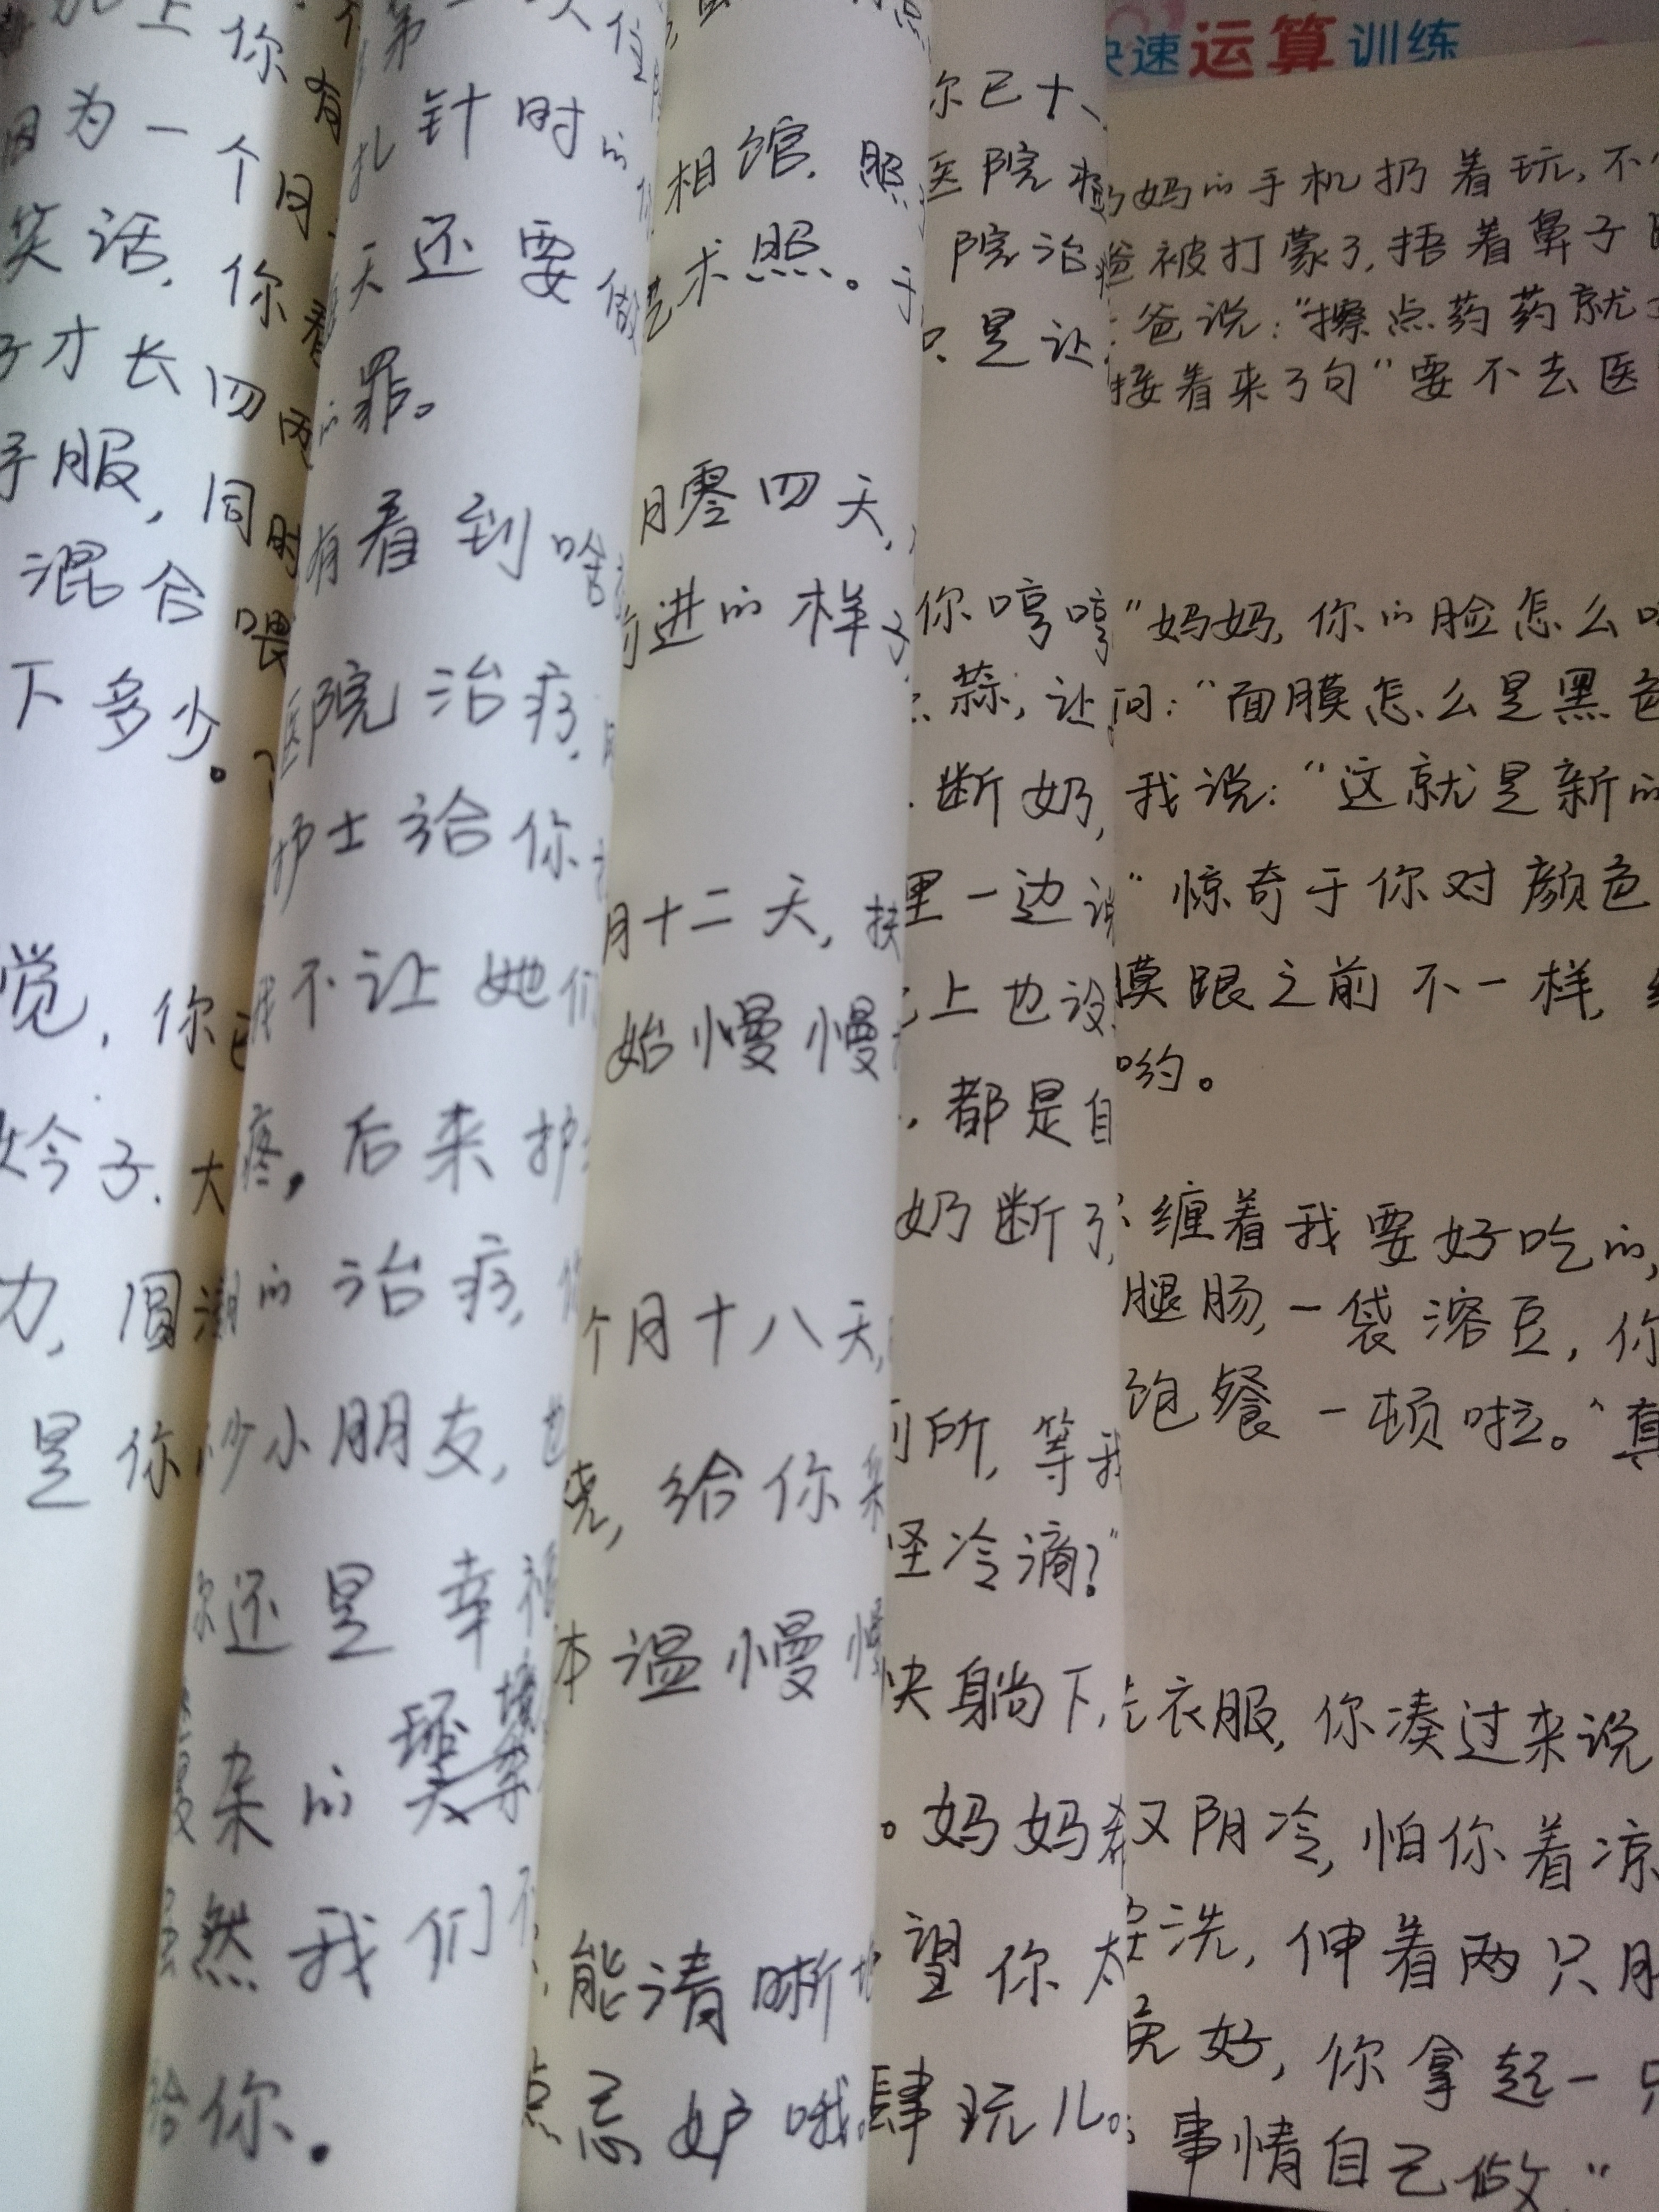 快速运算训练
上你
因为一个月
笑话,你
才长四两
服,同时
混合喂
下多少。
觉,你
妗子.大
力,圆
是你
第一次住
扎针时的
天还要做
的罪。
有看到啥
医院治疗,
护士给你
我不让她们
疼,后来护
的治疗,
少小朋友,也
你还是幸福
杂的环境
虽然我们
给你.
相馆.照
艺术照。于
月零四天,
前进的样子
月十二天,扶
始慢慢
个月十八天,
烧,给你
体温慢慢
能清晰
点忘妒哦
你已十
医院
院治
只是让
你哼哼
蒜,让
.断奶,
里一边说
上也没
.都是自
奶断了,
厕所,等我
怪冷滴?"
快躺下,
。妈妈
望你
肆玩儿。
妈妈的手机扔着玩,不
爸被打蒙了,捂着鼻子
爸说:"擦点药药就
接着来了句"要不去医
"妈妈,你的脸怎么
问:"面膜怎么是黑色
我说:"这就是新的
"惊奇于你对颜色
膜跟之前不一样,
哟。
缠着我要好吃的,
腿肠,一袋溶豆,你
饱餐一顿啦。"真
洗衣服,你凑过来说
又阴冷,怕你着凉
洗,伸着两只
好,你拿起一只
事情自己做"